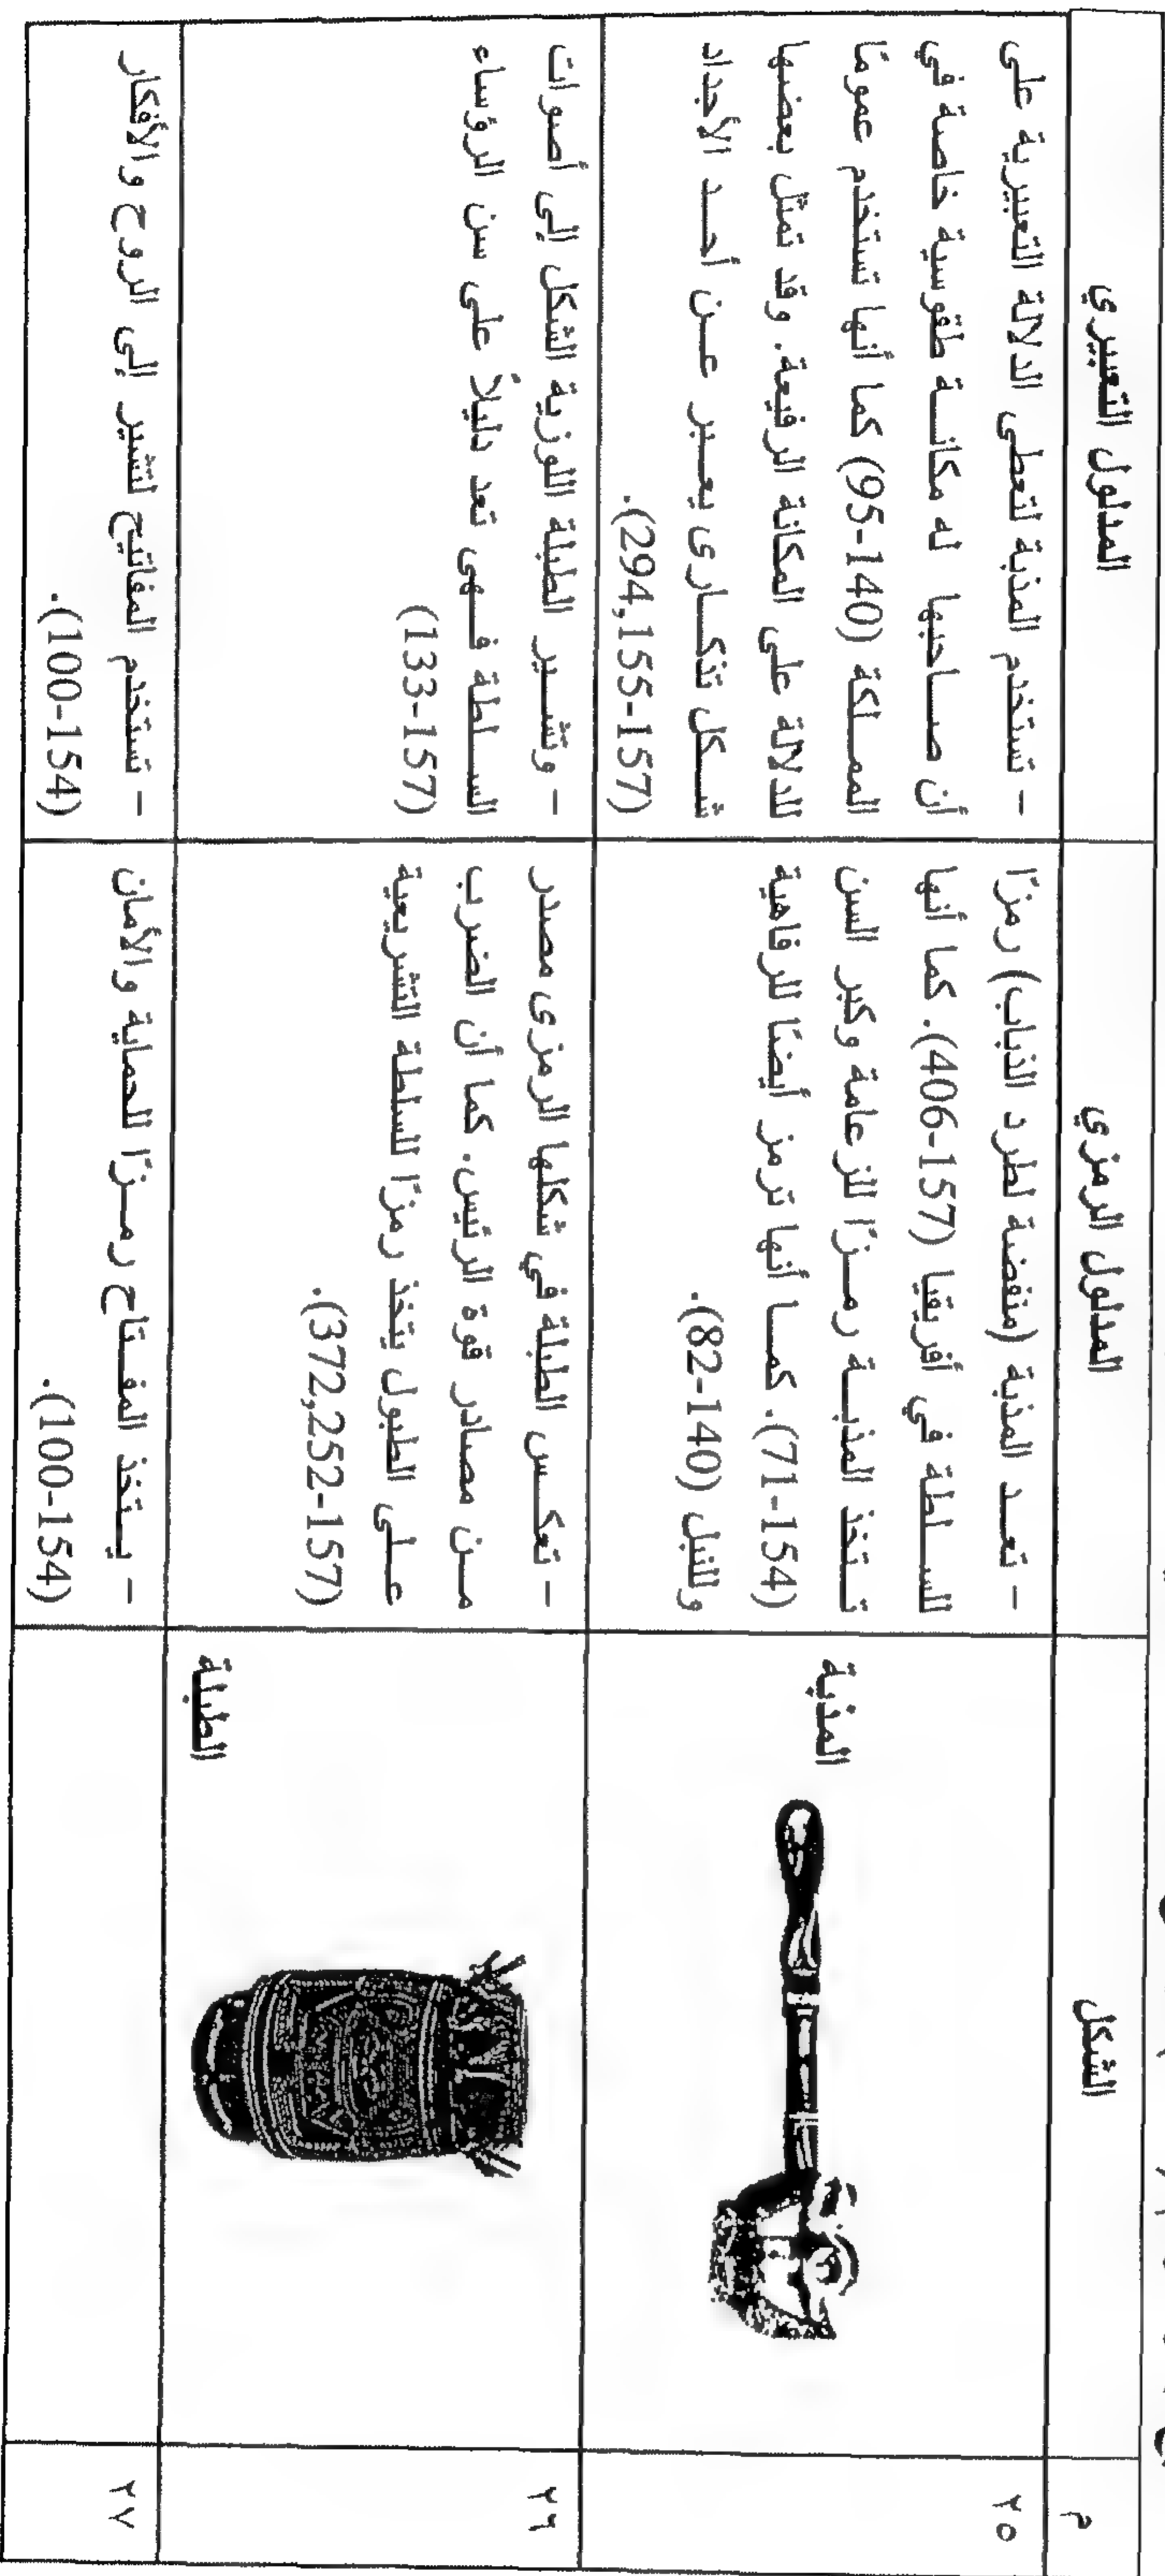 م
الشكل
المدلول الرمزي
المدلول التعبيري
٢٥
المذبة
– تعـد المذبة (منفضة لطرد الذباب) رمزًا
للسـلطة في أفريقيا (157-406). كما أنها
تـتخذ المذبـة رمـزًا للزعامة وكبر السن
(154-71). كمـا أنها ترمز أيضًا للرفاهية
وللنبل (140-82).
– تستخدم المذبة لتعطى الدلالة التعبيرية على
أن صـاحبها له مكانـة طقوسية خاصة في
المملـكة (140-95) كما أنها تستخدم عمومًا
للدلالة على المكانة الرفيعة. وقد تمثل بعضها
شـكل تذكـارى يعـبر عـن أحـد الأجداد
(157-294,155).
٢٦
الطبلة
– تعكـس الطبلة في شكلها الرمزى مصدر
مـن مصادر قوة الرئيس. كما أن الضرب
عـلى الطبول يتخذ رمزًا للسلطة التشريعية
(157-372,252).
– وتشـير الطبلة اللوزية الشكل إلى أصوات
السـلطة فـهى تعد دليلاً على سن الرؤساء
(157-133)
٢٧
– يـتخذ المفـتاح رمـزًا للحماية والأمان
(154-100).
– تستخدم المفاتيح لتشير إلى الروح والأفكار
(154-100).